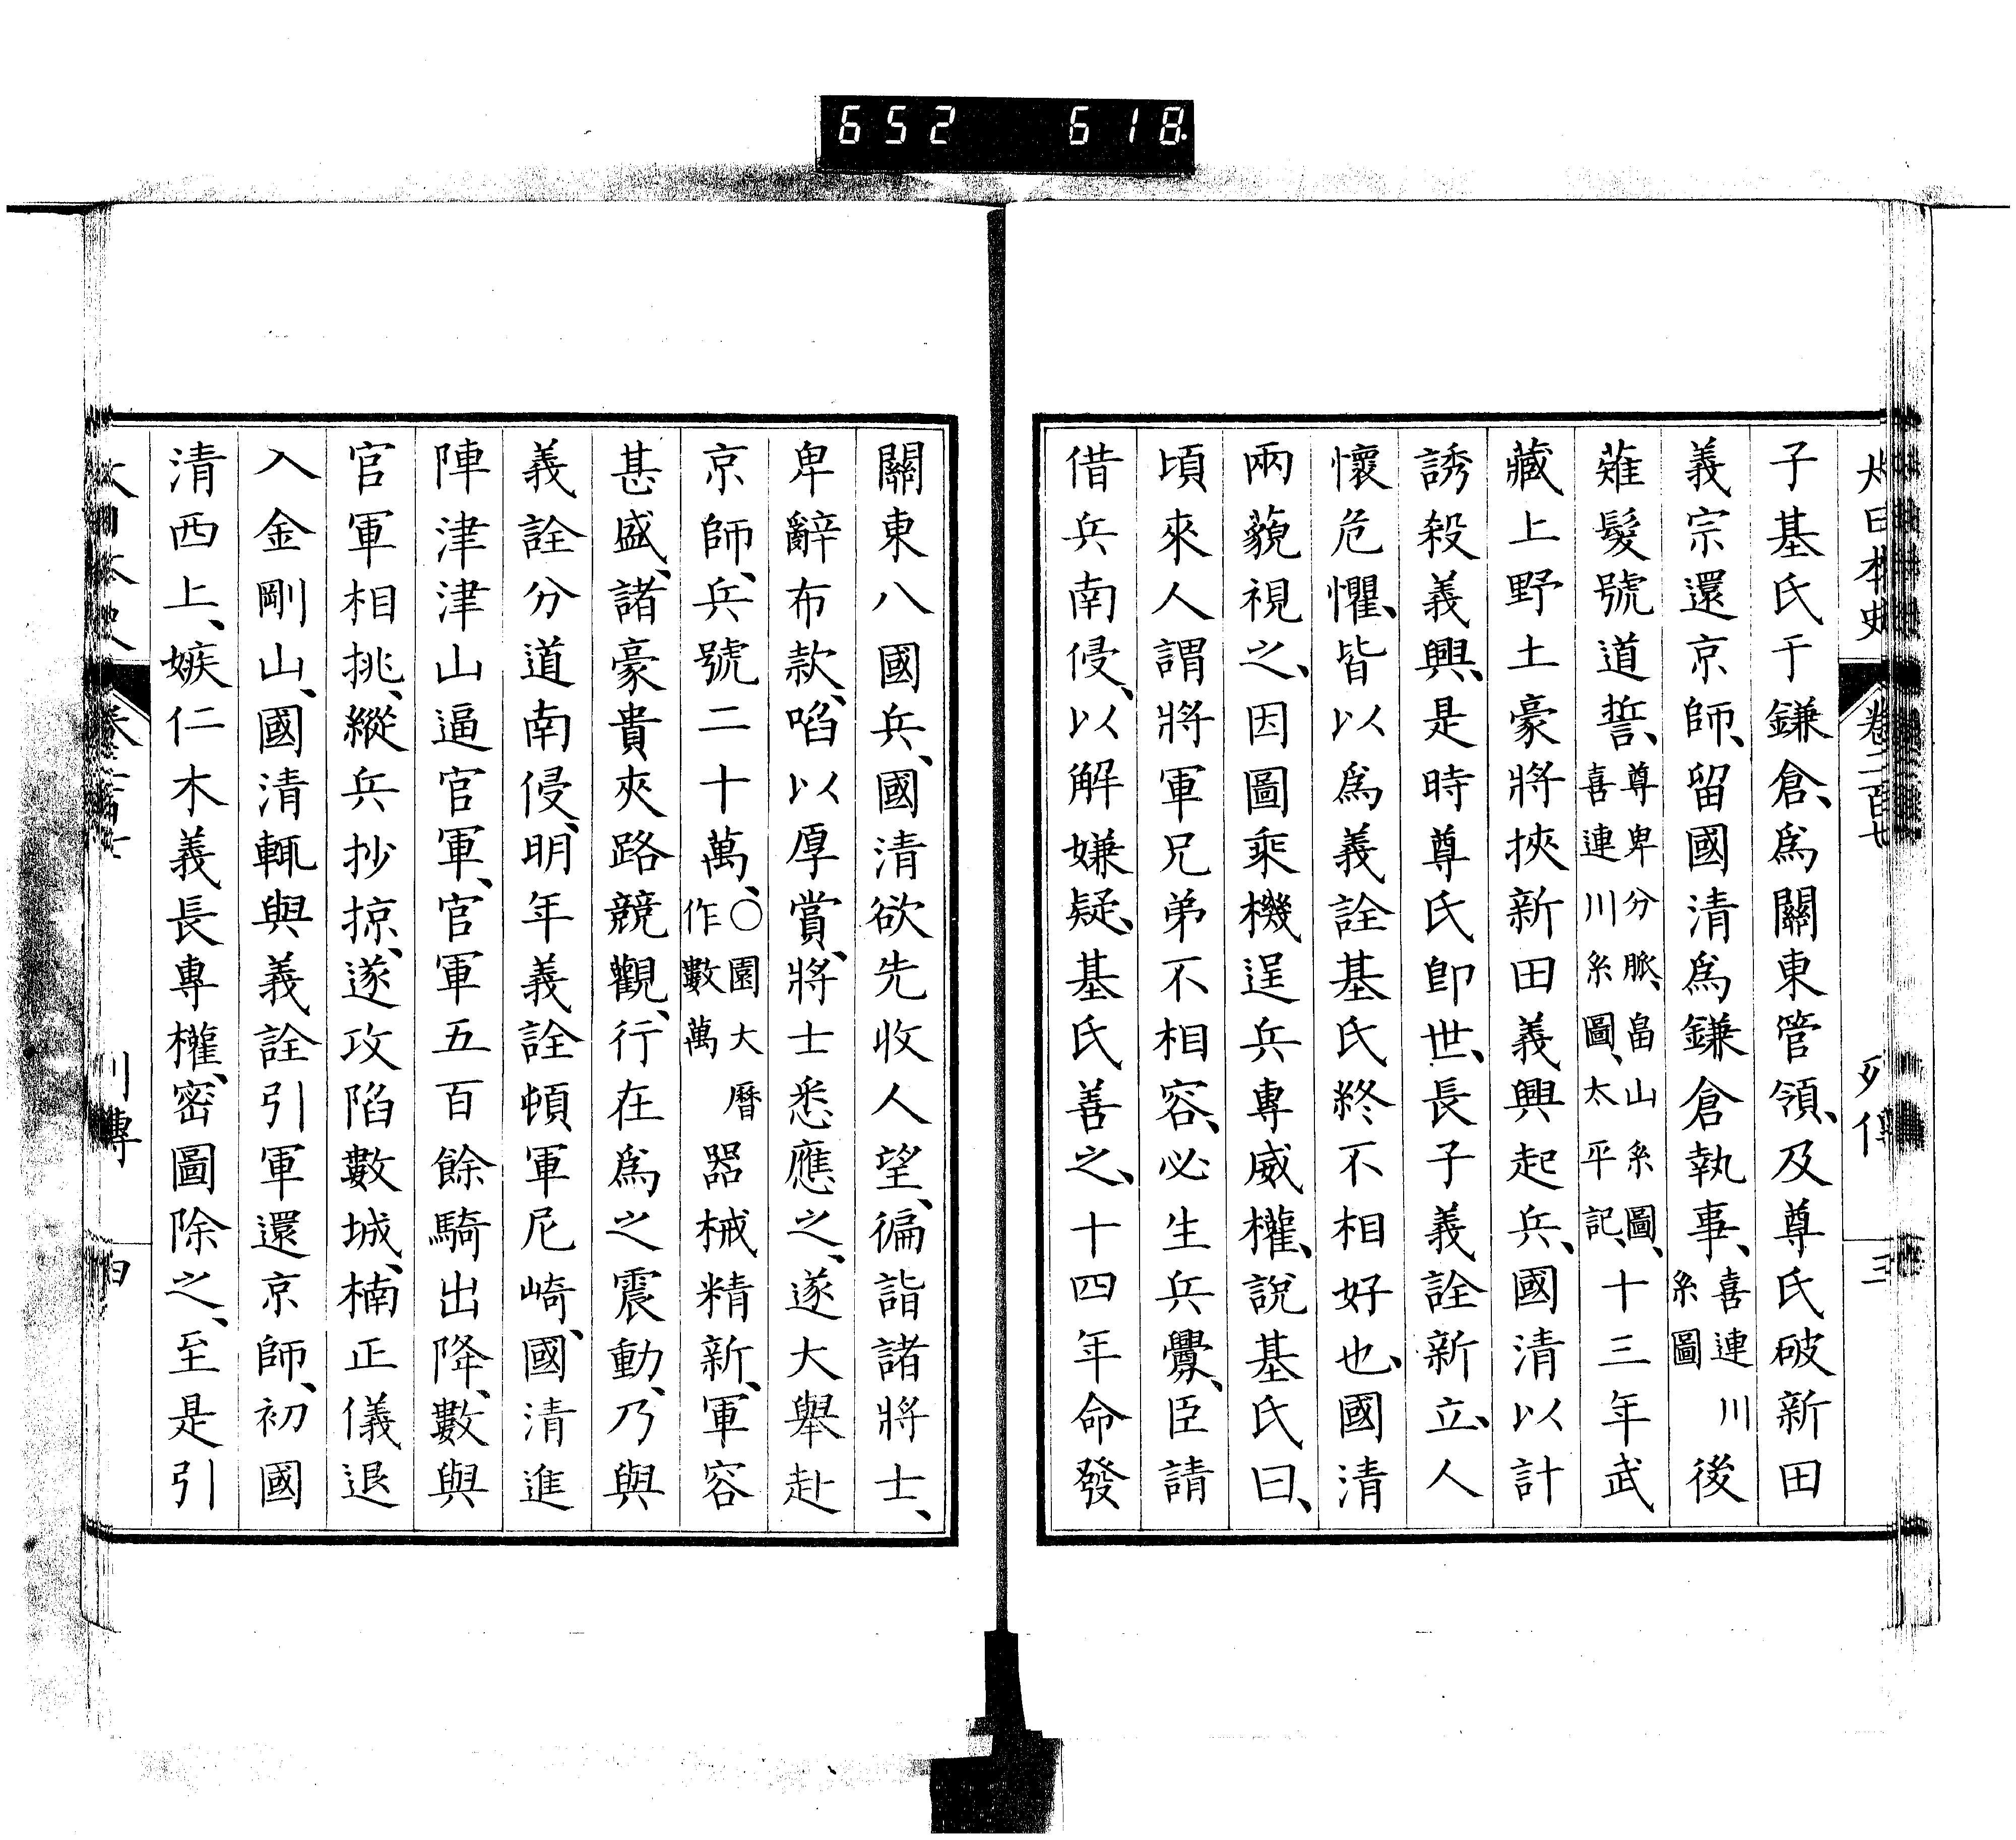 652 618
大日本史 卷二百七 列傳 三
子基氏于鎌倉、爲關東管領、及尊氏破新田
義宗還京師、留國清爲鎌倉執事、喜連川系圖後
薙髮號道誓、尊卑分脈、畠山系圖、喜連川系圖、太平記、十三年武
藏上野土豪將挾新田義興起兵、國清以計
誘殺義興、是時尊氏卽世、長子義詮新立、人
懷危懼、皆以爲義詮基氏終不相好也、國清
兩藐視之、因圖乘機逞兵專威權、說基氏曰、
頃來人謂將軍兄弟不相容、必生兵釁、臣請
借兵南侵、以解嫌疑、基氏善之、十四年命發
關東八國兵、國清欲先收人望、徧詣諸將士、
卑辭布款、啗以厚賞、將士悉應之、遂大舉赴
京師、兵號二十萬、○園大曆作數萬器械精新、軍容
甚盛、諸豪貴夾路競觀、行在爲之震動、乃與
義詮分道南侵、明年義詮頓軍尼崎、國清進
陣津津山逼官軍、官軍五百餘騎出降、數與
官軍相挑、縱兵抄掠、遂攻陷數城、楠正儀退
入金剛山、國清輒與義詮引軍還京師、初國
清西上、嫉仁木義長專權、密圖除之、至是引